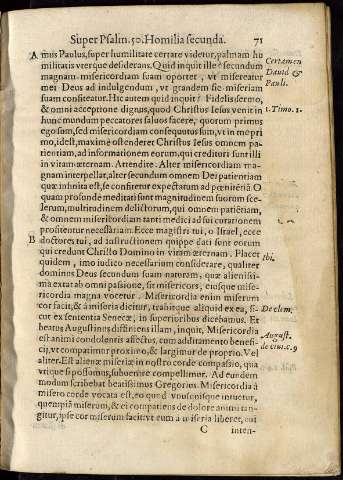 Super Psalm. 50. Homilia secunda. 71
A mus Paulus, super humilitate certare videtur, palmam hu
militatis vterque desiderans. Quid inquit ille? secundum
magnam misericordiam suam oportet, vt misereatur
mei Deus ad indulgendum, vt grandem sic miseriam
suam confiteatur. Hic autem quid inquit? Fidelis sermo,
& omni acceptione dignus, quod Christus Iesus venit in
hunc mundum peccatores saluos facere, quorum primus
ego sum, sed misericordiam consequutus sum, vt in me pri
mo, idest, maximè ostenderet Christus Iesus omnem pa-
tientiam, ad informationem eorum, qui credituri sunt illi
in vitam æternam. Attendite. Alter misericordiam ma-
gnam interpellat, alter secundum omnem Dei patientiam
quæ infinita est, se confitetur expectatum ad pœnitētiā. O
quam profundè meditati sunt magnitudinem suorum sce-
lerum, multitudinem delictorum, qui omnem patiētiam,
& omnem misericordiam tanti medici ad sui curationem
profitentur necessariam. Ecce magistri tui, o Israel, ecce
B doctores tui, ad instructionem quippe dati sunt eorum
qui credunt Christo Domino in vitam æternam. Placet
quidem, imo iudico necessarium considerare, qualiter
dominus Deus secundum suam naturam, quæ alienissi-
ma extat ab omni passione, sit misericors, eiusque mise-
ricordia magna vocetur. Misericordia enim miserum
cor facit, & à miseria dicitur, trahitque aliquid ex ea, si-
cut ex sententia Senecæ, in superioribus dicebamus. Et
beatus Augustinus diffiniens illam, inquit. Misericordia
est animi condolentis affectus, cum additamento benefi-
cij, vt compatimur proximo, & largimur de proprio. Vel
aliter. Est alienæ miseriæ in nostro corde compassio, qua
vtique si possumus, subuenire compellimur. Ad eundem
modum scribebat beatissimus Gregorius. Misericordia à
misero corde vocata est, eo quod vnusquisque intuetur,
quempiā miserum, & ei compatiens de dolore animi tan-
gitur, ipse cor miserum facit vt eum à miseria liberet, cui
C inten-
Certamen
Dauid &
Pauli.
1. Timo. 1.
Ibi.
De clem.
August.
de ciui. c. 9